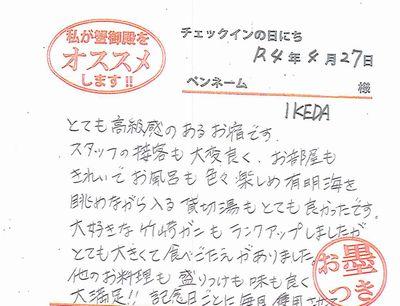 私が蟹御殿を
オススメ
します!!
チェックインの日にち
R4年4月27日
ペンネーム
IKEDA
様
とても高級感のあるお宿です。
スタッフの接客も大変良く、お部屋も
きれいでお風呂も色々楽しめ有明海を
眺めながら入る貸切湯もとても良かったです。
大好きな竹崎ガニもランクアップしましたが
とても大きくて食べごたえがありました
他のお料理も盛りつけも味も良く
大満足!! 記念日ごとに毎月使用
お墨つき